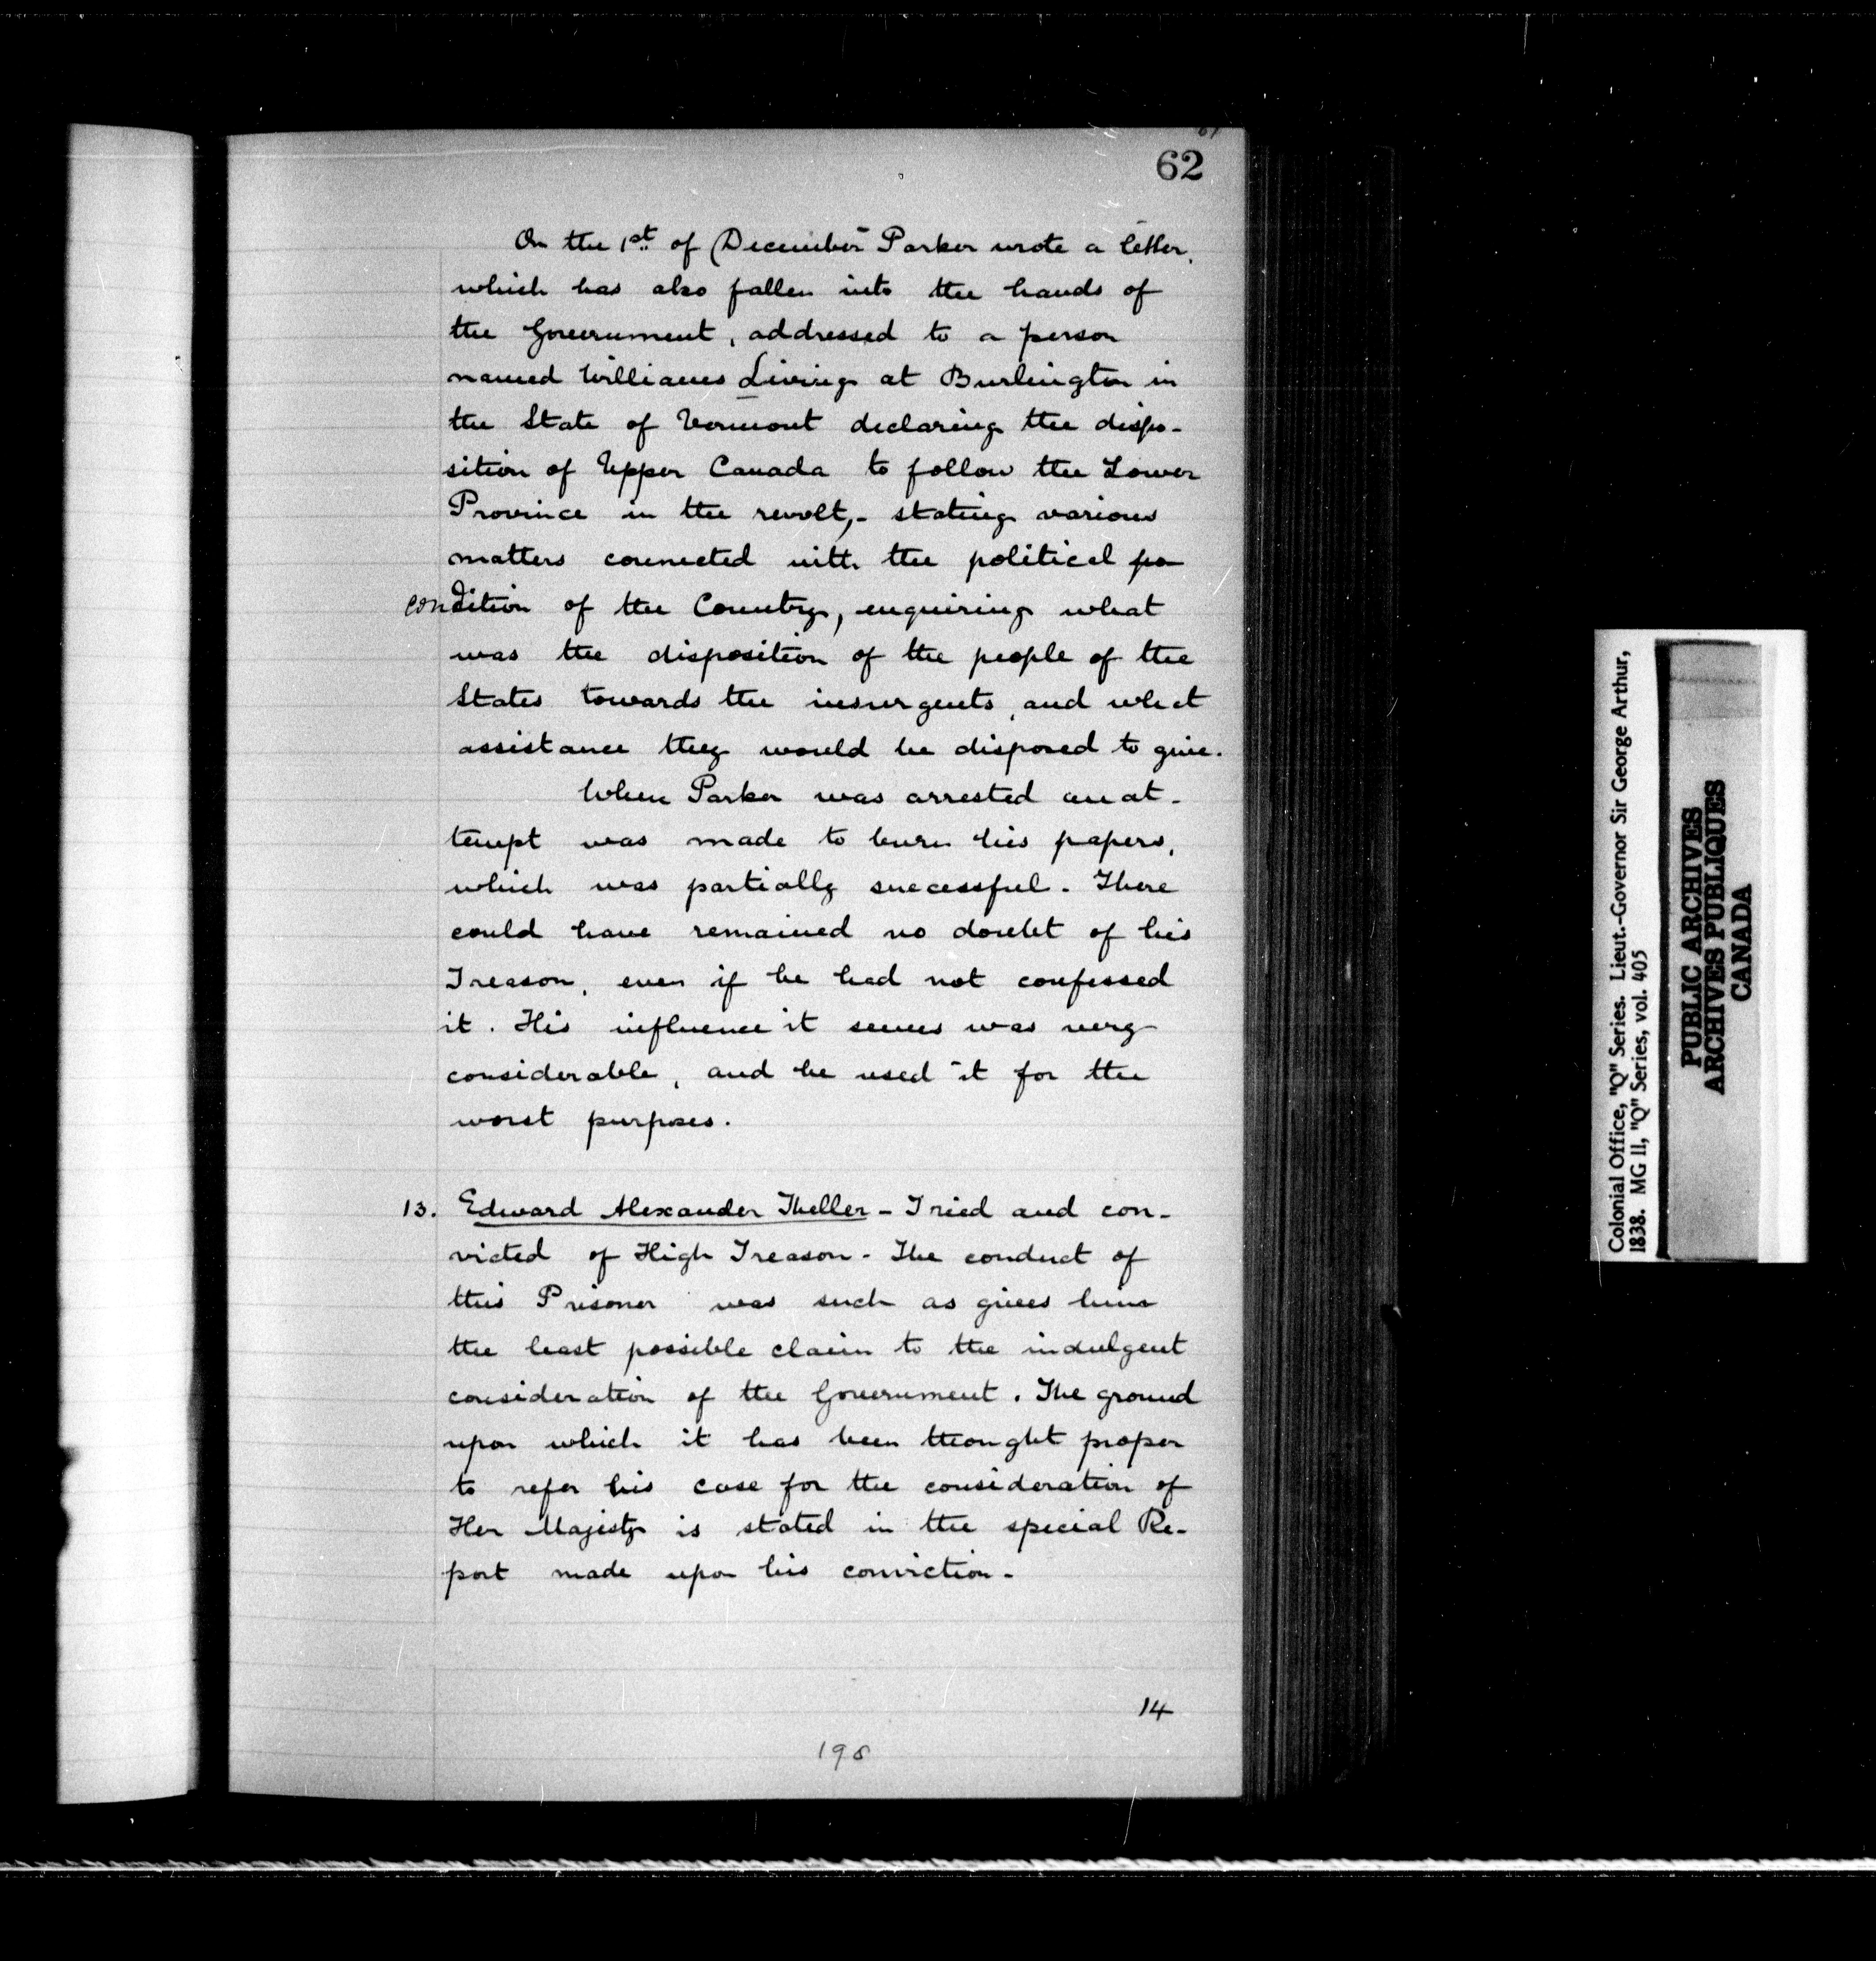 62
On the 1st of December Parker wrote a letter,
which has also fallen into the hands of
the Government, addressed to a person
named Williams Living at Burlington in
the State of Vermont declaring the dispo-
sition of Upper Canada to follow the Lower
Province in the revolt,- stating various
matters connected with the political po
condition of the Country, enquiring what
was the disposition of the people of the
States towards the insurgents, and what
assistance they would be disposed to give.
When Parker was arrested an at-
tempt was made to burn his papers,
which was partially successful. There
could have remained no doubt of his
Treason, even if he had not confessed
it. His influence it seems was very
considerable, and he used it for the
worst purposes.
13. Edward Alexander Theller - Tried and con-
victed of High Treason - The conduct of
this Prisoner was such as gives him
the least possible claim to the indulgent
consideration of the Government. The ground
upon which it has been thought proper
to refer his case for the consideration of
Her Majesty is stated in the special Re-
port made upon his conviction -
14
Colonial Office, "Q" Series. Lieut.-Governor Sir George Arthur,
1838. MG II, "Q" Series, vol. 405
PUBLIC ARCHIVES
ARCHIVES PUBLIQUES
CANADA